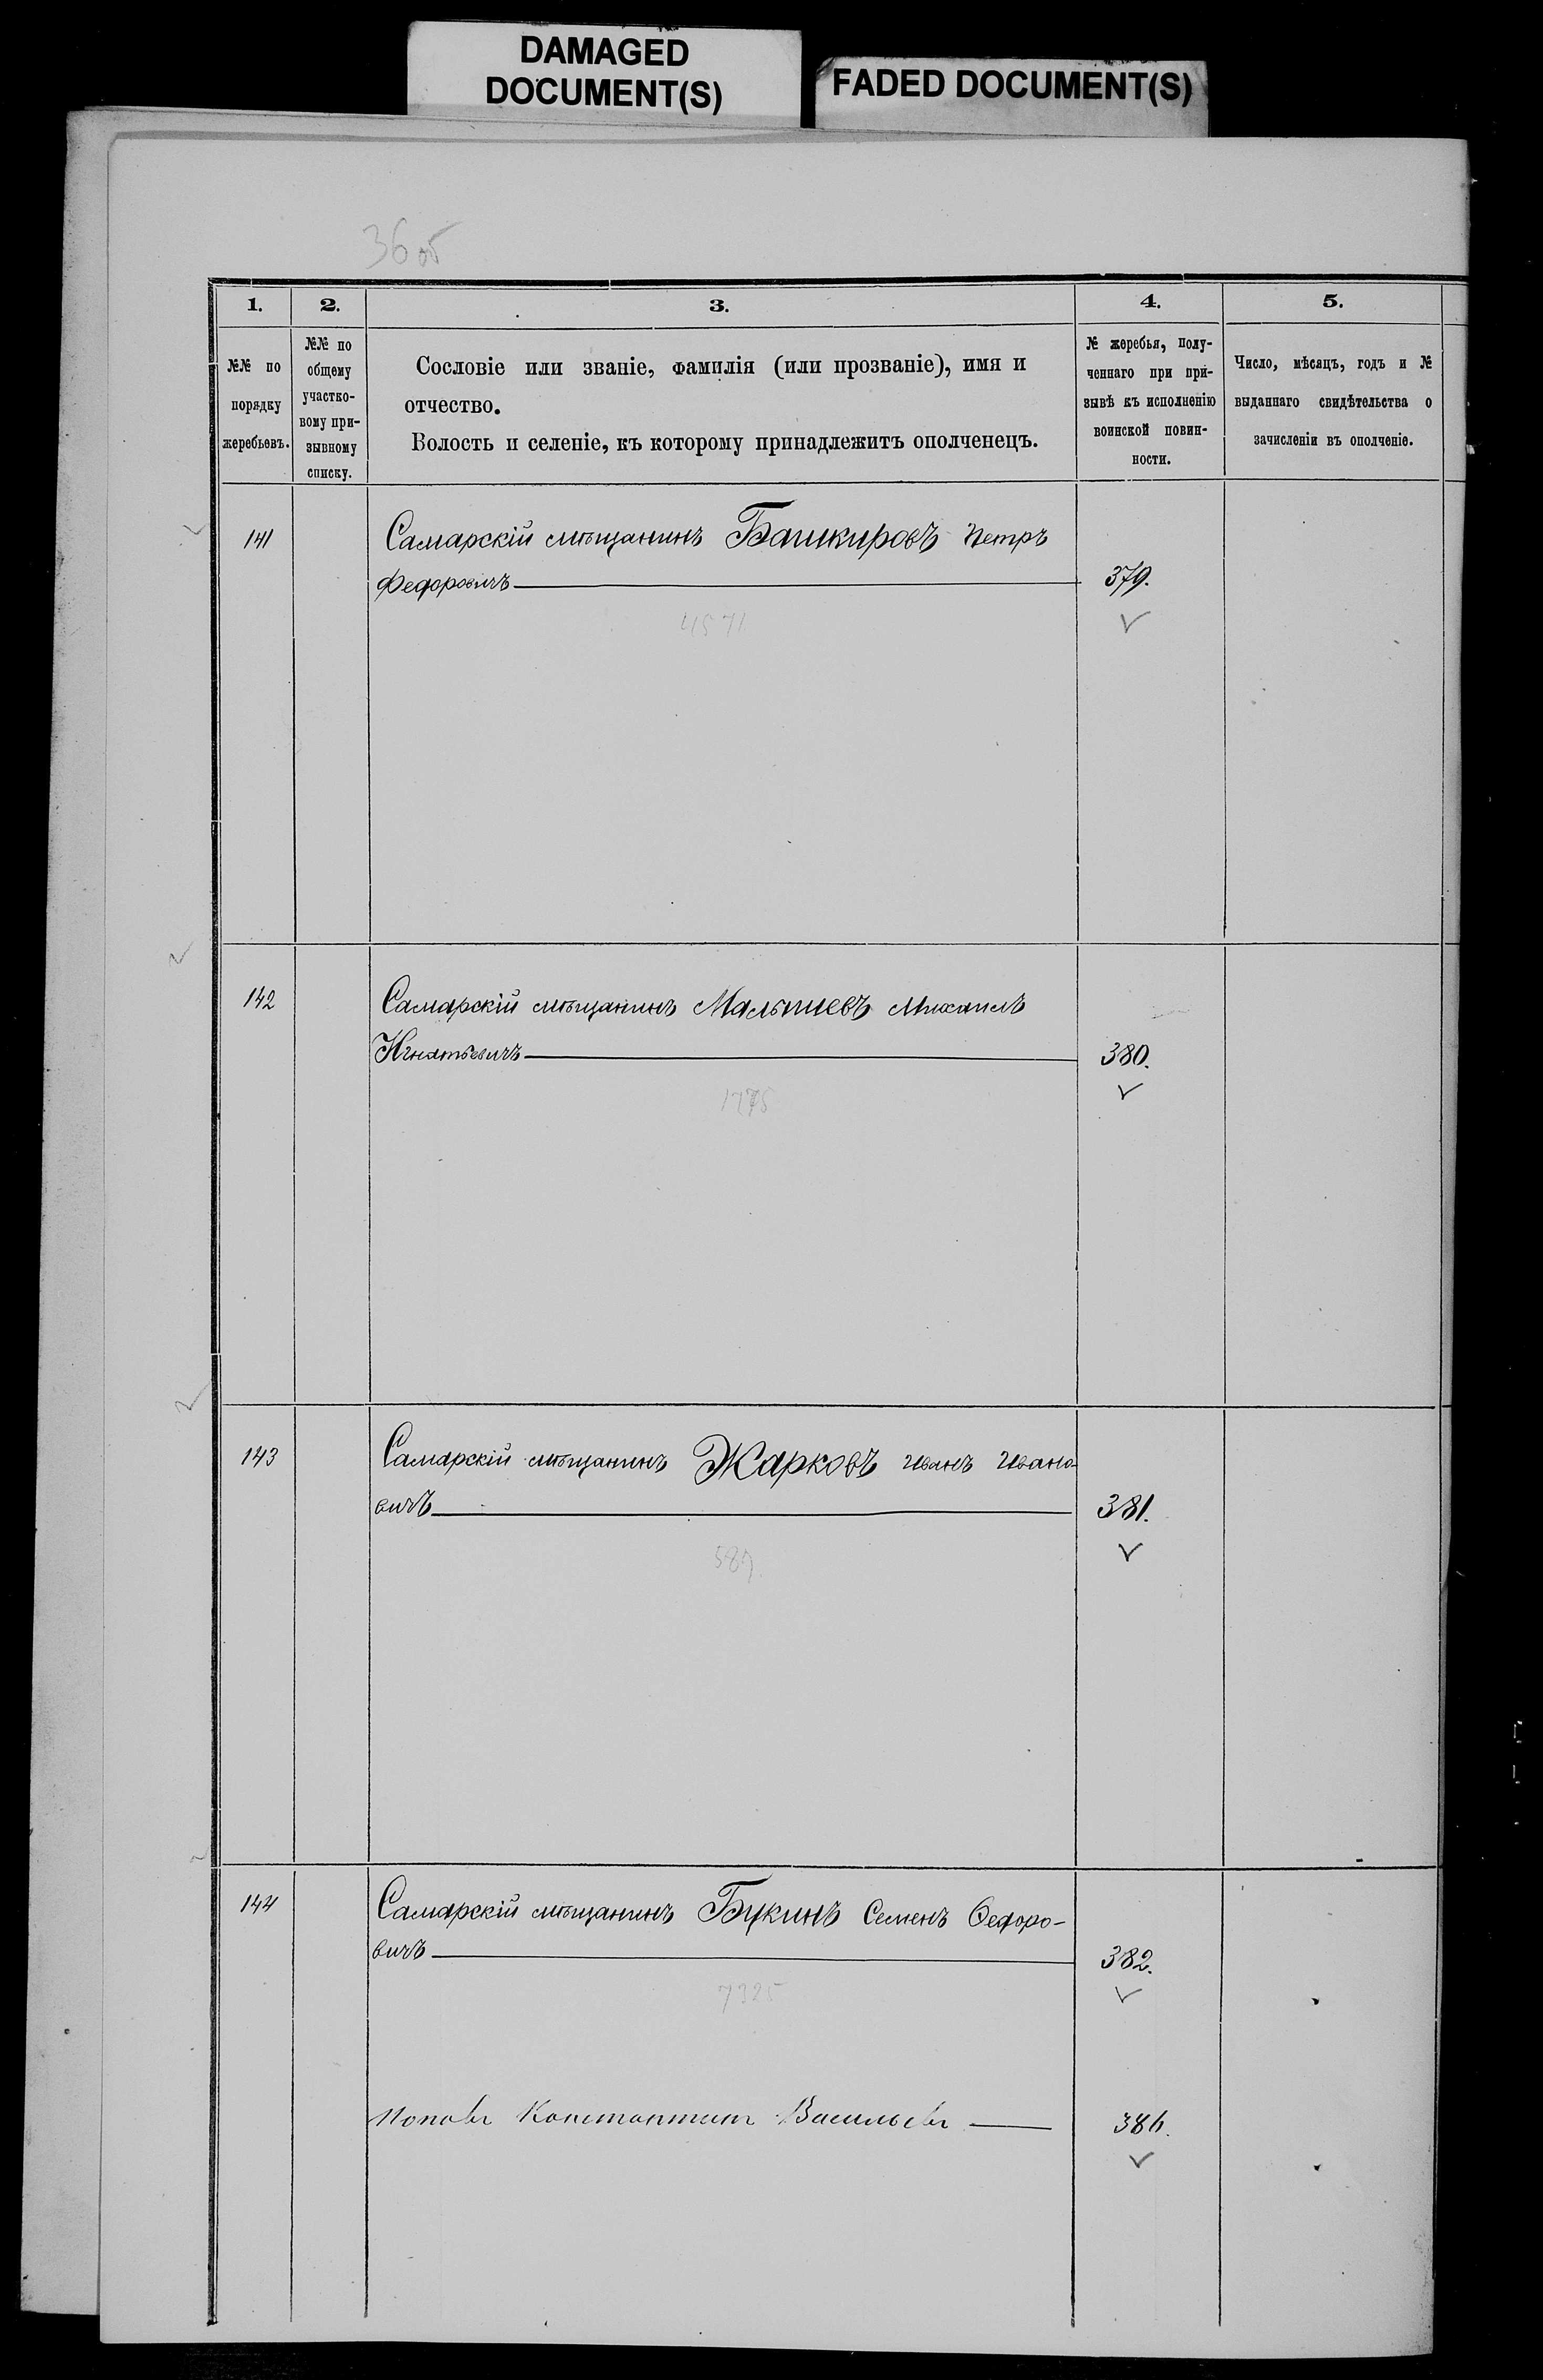 DAMAGED
DOCUMENT(S)
FADED DOCUMENT(S)
36 об
1.
2.
3.
4.
5.
№№ по
порядку
жеребьевъ.
№№ по
общему
участко-
вому при-
зывному
списку.
Сословіе или званіе, фамилія (или прозваніе), имя и
отчество.
Волость и селеніе, къ которому принадлежитъ ополченецъ.
№ жеребья, полу-
ченнаго при при-
зывѣ къ исполненію
воинской повин-
ности.
Число, мѣсяцъ, годъ и №
выданнаго свидѣтельства о
зачисленіи въ ополченіе.
141
Самарскій мѣщанинъ Башкировъ Петръ
Федоровичъ
379.
4571
142
Самарскій мѣщанинъ Малышевъ Михаилъ
Игнатьевичъ
380.
1775
143
Самарскій мѣщанинъ Жарковъ Иванъ Ивано-
вичъ
381.
587.
144
Самарскій мѣщанинъ Букинъ Семенъ Ѳедоро-
вичъ
382.
7325
Поповъ Константинъ Васильевъ
386.